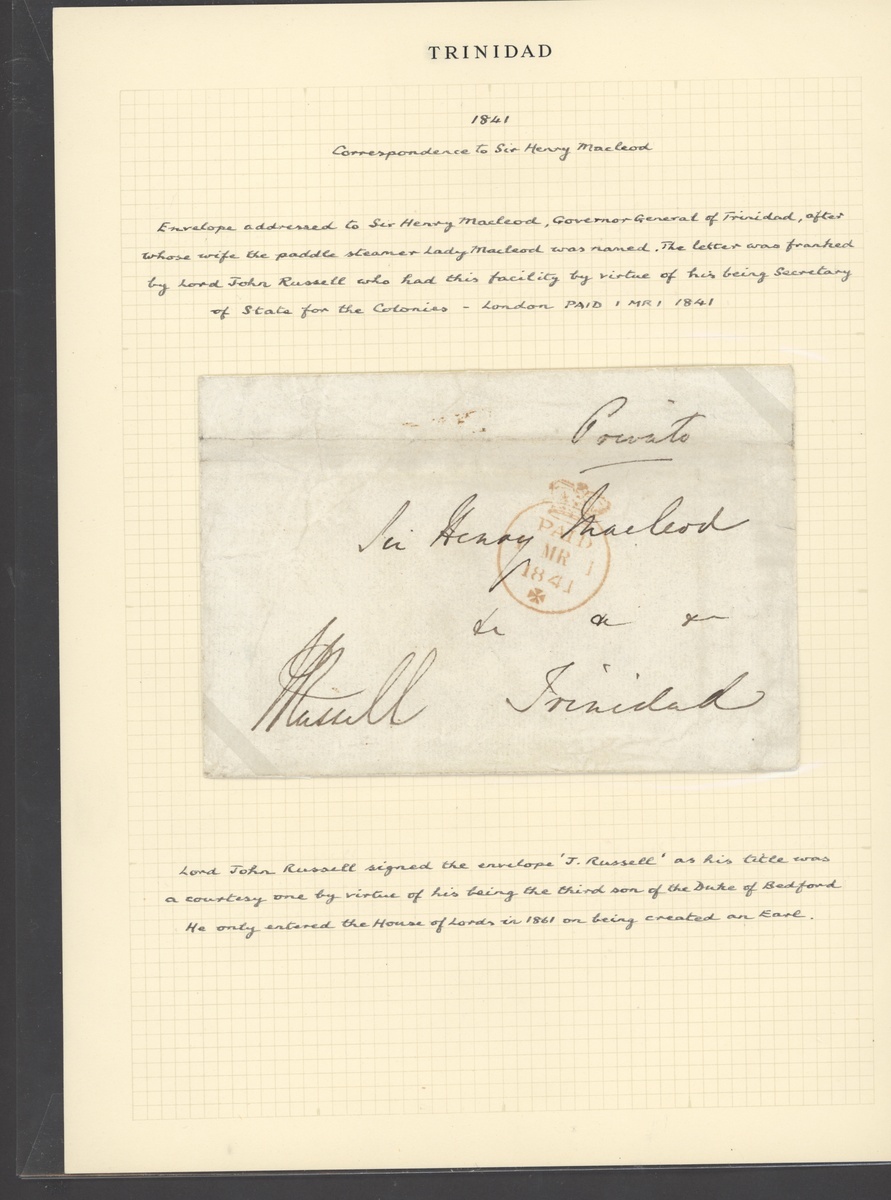 TRINIDAD
1841
Correspondence to Sir Henry Macleod
Envelope addressed to Sir Henry Macleod, Governor General of Trinidad, after
whose wife the paddle steamer Lady Macleod was named. The letter was franked
by Lord John Russell who had this facility by virtue of his being Secretary
of State for the Colonies - London PAID 1 MR 1 1841
Private
Sir Henry Macleod
PAID
MR 1
1841
& & &
JRussell
Trinidad
Lord John Russell signed the envelope 'J. Russell' as his title was
a courtesy one by virtue of his being the third son of the Duke of Bedford
He only entered the House of Lords in 1861 on being created an Earl.